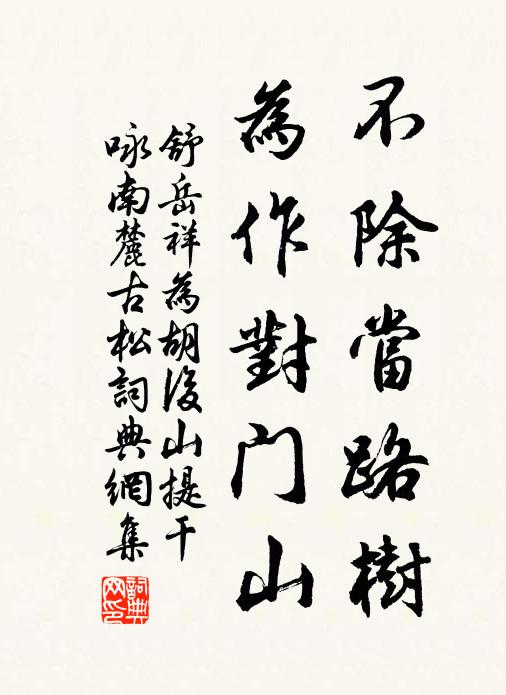 不除當路樹
為作對门山
舒岳祥為胡後山提干
咏南麓古松詞典網集
詞典
网印